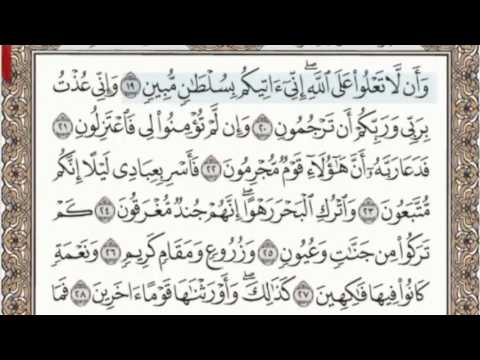 وَأَن لَّا تَعْلُوا۟ عَلَى ٱللَّهِ ۖ إِنِّىٓ ءَاتِيكُم بِسُلْطَٰنٍ مُّبِينٍ ١٩ وَإِنِّى عُذْتُ
بِرَبِّى وَرَبِّكُمْ أَن تَرْجُمُونِ ٢٠ وَإِن لَّمْ تُؤْمِنُوا۟ لِى فَٱعْتَزِلُونِ ٢١
فَدَعَا رَبَّهُۥٓ أَنَّ هَٰٓؤُلَآءِ قَوْمٌ مُّجْرِمُونَ ٢٢ فَأَسْرِ بِعِبَادِى لَيْلًا إِنَّكُم
مُّتَّبَعُونَ ٢٣ وَٱتْرُكِ ٱلْبَحْرَ رَهْوًا ۖ إِنَّهُمْ جُندٌ مُّغْرَقُونَ ٢٤ كَمْ
تَرَكُوا۟ مِن جَنَّٰتٍ وَعُيُونٍ ٢٥ وَزُرُوعٍ وَمَقَامٍ كَرِيمٍ ٢٦ وَنَعْمَةٍ
كَانُوا۟ فِيهَا فَٰكِهِينَ ٢٧ كَذَٰلِكَ ۖ وَأَوْرَثْنَٰهَا قَوْمًا ءَاخَرِينَ ٢٨ فَمَا